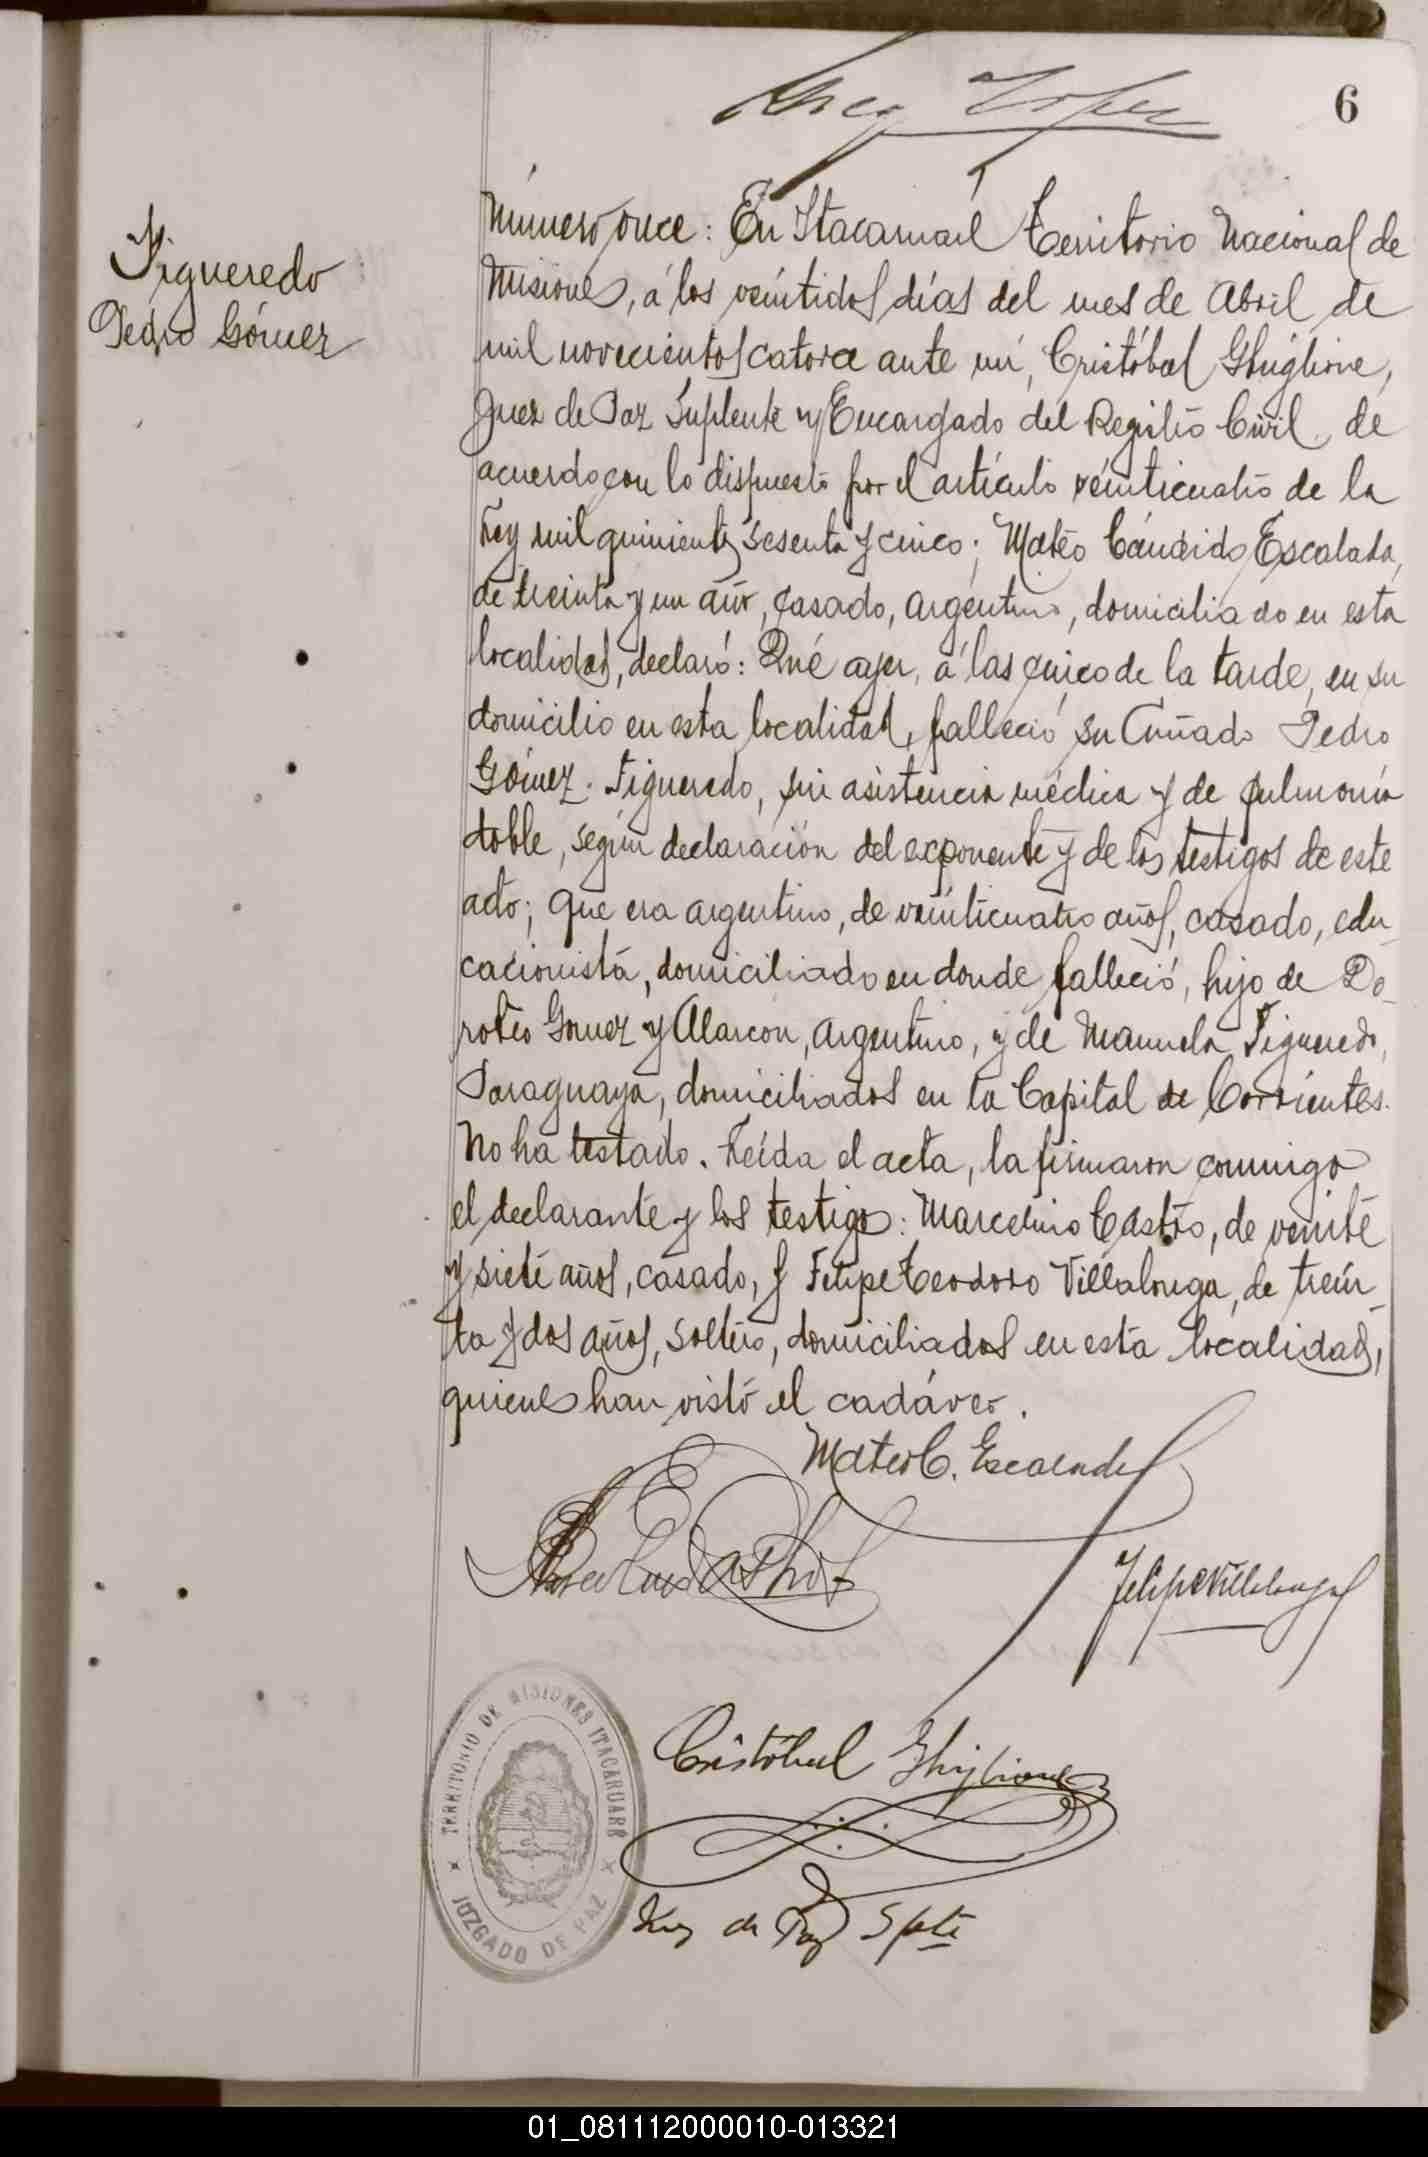 6
Figueredo
Pedro Gómez
Número once: En Itacaruaré Territorio Nacional de
Misiones, á los veintidos días del mes de Abril de
mil novecientos catorce ante mí, Cristóbal Ghiglione,
Juez de Paz Suplente y Encargado del Registro Civil, de
acuerdo con lo dispuesto por el artículo veinticuatro de la
Ley mil quinientos sesenta y cinco; Mateo Cándido Escalada,
de treinta y un años, casado, argentino, domiciliado en esta
localidad, declaró: Qué ayer, á las cinco de la tarde, en su
domicilio en esta localidad, falleció su Cuñado Pedro
Gómez Figueredo, sin asistencia médica y de pulmonía
doble, según declaración del exponente y de los testigos de este
acto; que era argentino, de veinticuatro años, casado, edu-
cacionista, domiciliado en donde falleció, hijo de Do-
roteo Gomez y Alarcon, argentino, y de Manuela Figueredo,
Paraguaya, domiciliados en la Capital de Corrientes.
No ha testado. Leída el acta, la firmaron conmigo
el declarante y los testigos: Marcelino Castro, de veinte
y siete años, casado, y Felipe Teodoro Villalonga, de trein-
ta y dos años, soltero, domiciliados en esta localidad,
quienes han visto el cadáver.
Mateo C. Escalada
Marcelino Castro
Felipe Villalonga
Cristóbal Ghiglione
Juez de Paz Splte
TERRITORIO DE MISIONES ITACARUARE
JUZGADO DE PAZ
01_081112000010-013321